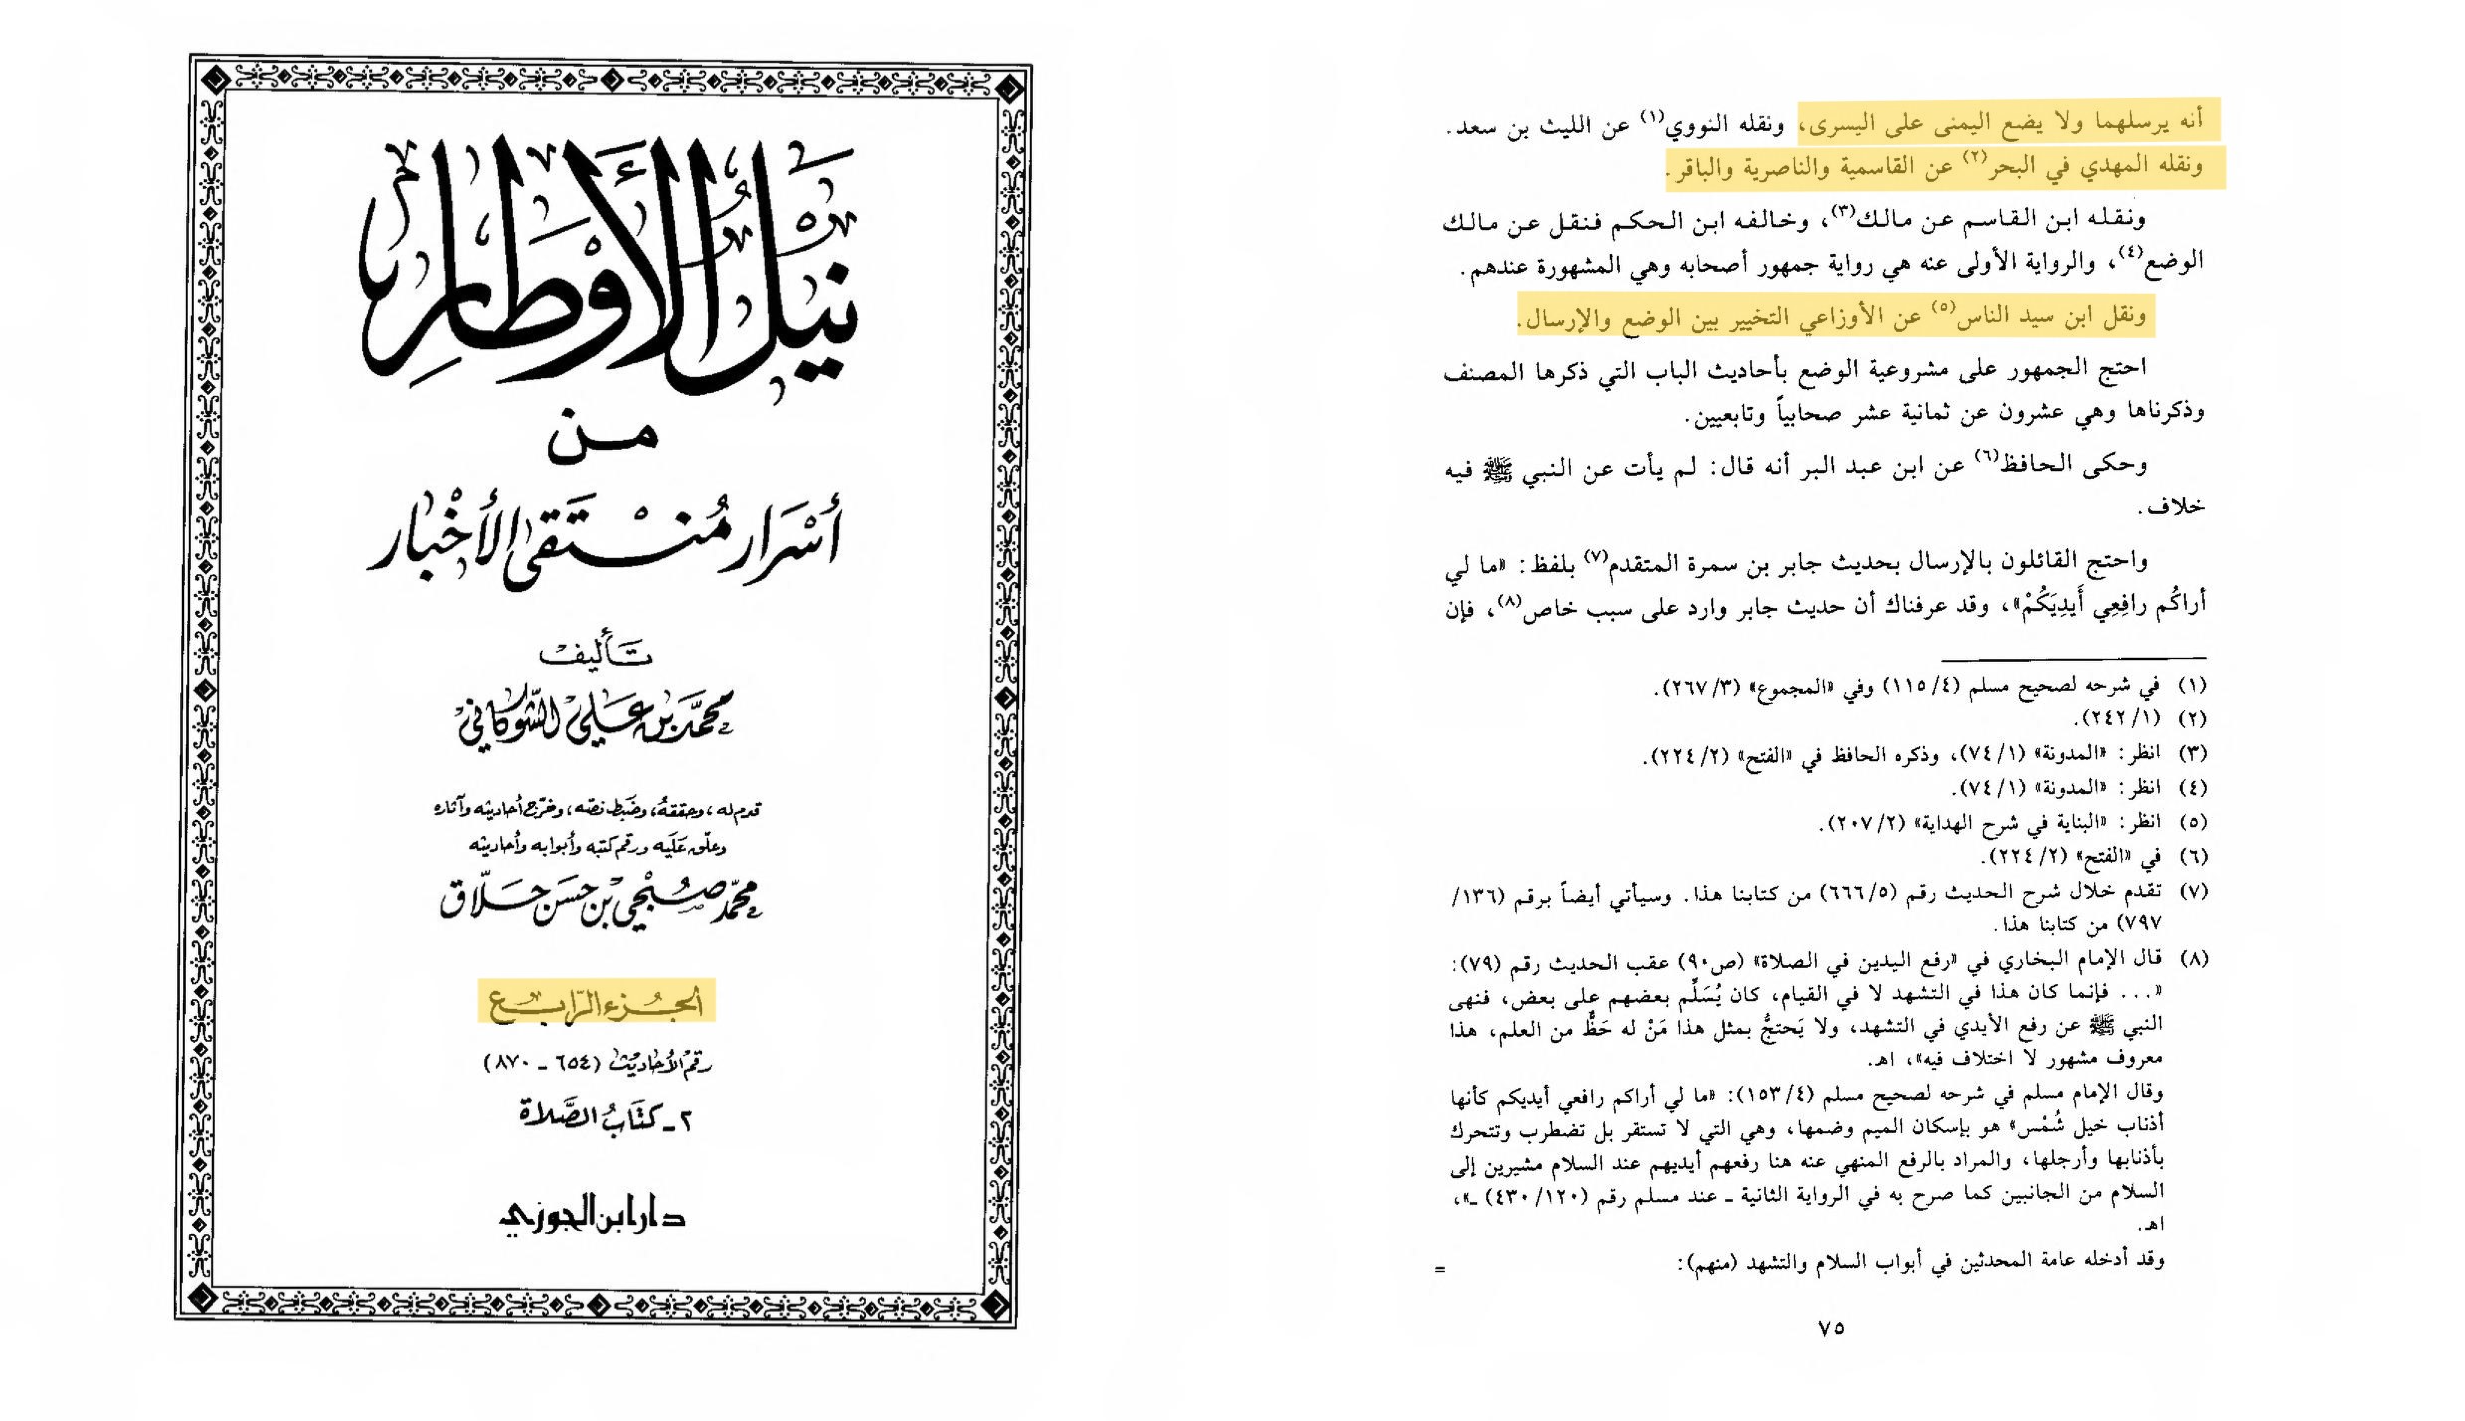 نَيْلُ الأَوْطَارِ
من
أَسْرَارِ مُنْتَقَى الأَخْبَارِ
تَأليف
محمَّد بن عَلي الشَّوكاني
قدم له، وحققهُ، وضَبط نصّه، وخرّج أحاديثه وآثاره
وعلّق عَلَيه ورقم كتبه وأبوابه وأحاديثه
محمَّد صُبْحِي بن حَسَن حَلّاق
الجُزء الرّابع
رقم الأحاديث (٦٥٤ - ٨٧٠)
٢ - كتَابُ الصَّلاة
دار ابن الجوزي
أنه يرسلهما ولا يضع اليمنى على اليسرى، ونقله النووي(١) عن الليث بن سعد.
ونقله المهدي في البحر(٢) عن القاسمية والناصرية والباقر.
ونقله ابن القاسم عن مالك(٣)، وخالفه ابن الحكم فنقل عن مالك
الوضع(٤)، والرواية الأولى عنه هي رواية جمهور أصحابه وهي المشهورة عندهم.
ونقل ابن سيد الناس(٥) عن الأوزاعي التخيير بين الوضع والإرسال.
احتج الجمهور على مشروعية الوضع بأحاديث الباب التي ذكرها المصنف
وذكرناها وهي عشرون عن ثمانية عشر صحابياً وتابعيين.
وحكى الحافظ(٦) عن ابن عبد البر أنه قال: لم يأت عن النبي ﷺ فيه
خلاف.
واحتج القائلون بالإرسال بحديث جابر بن سمرة المتقدم(٧) بلفظ: «ما لي
أراكُم رافِعِي أَيدِيَكُمْ»، وقد عرفناك أن حديث جابر وارد على سبب خاص(٨)، فإن
(١) في شرحه لصحيح مسلم (٤/١١٥) وفي «المجموع» (٣/٢٦٧).
(٢) (١/٢٤٢).
(٣) انظر: «المدونة» (١/٧٤)، وذكره الحافظ في «الفتح» (٢/٢٢٤).
(٤) انظر: «المدونة» (١/٧٤).
(٥) انظر: «البناية في شرح الهداية» (٢/٢٠٧).
(٦) في «الفتح» (٢/٢٢٤).
(٧) تقدم خلال شرح الحديث رقم (٥/٦٦٦) من كتابنا هذا. وسيأتي أيضاً برقم (١٣٦/
٧٩٧) من كتابنا هذا.
(٨) قال الإمام البخاري في «رفع اليدين في الصلاة» (ص٩٠) عقب الحديث رقم (٧٩):
«... فإنما كان هذا في التشهد لا في القيام، كان يُسَلِّم بعضهم على بعض، فنهى
النبي ﷺ عن رفع الأيدي في التشهد، ولا يَحتجُّ بمثل هذا مَنْ له حَظٌّ من العلم، هذا
معروف مشهور لا اختلاف فيه»، اهـ.
وقال الإمام مسلم في شرحه لصحيح مسلم (٤/١٥٣): «ما لي أراكم رافعي أيديكم كأنها
أذناب خيل شُمْس» هو بإسكان الميم وضمها، وهي التي لا تستقر بل تضطرب وتتحرك
بأذنابها وأرجلها، والمراد بالرفع المنهي عنه هنا رفعهم أيديهم عند السلام مشيرين إلى
السلام من الجانبين كما صرح به في الرواية الثانية ـ عند مسلم رقم (١٢٠/٤٣٠) ـ»،
اهـ.
وقد أدخله عامة المحدثين في أبواب السلام والتشهد (منهم):
=
٧٥